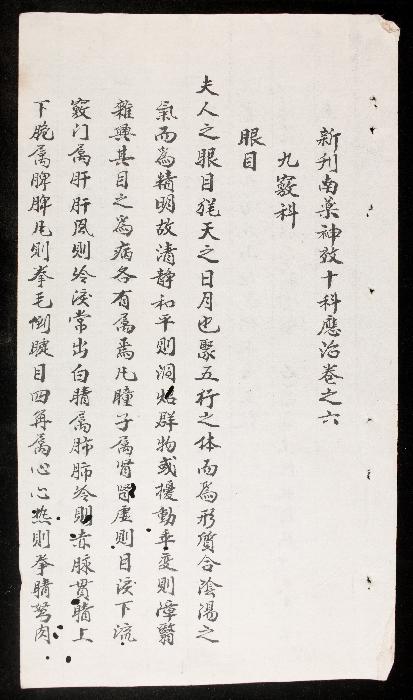 新刊南藥神效十科應治卷之六
九竅科
眼目
夫人之眼目猶天之日月也聚五行之体而爲形質合陰陽之
氣而爲精明故清静和平則洞照群物或擾動乖變則障翳
雜興其目之爲病各有属焉凢瞳子属腎腎虚則目淚下流
竅门属肝肝风則冷淚常出白睛属肺肺冷則赤脉貫睛上
下胞属脾脾凢則拳毛倒睫目四再属心心熱則拳睛努肉